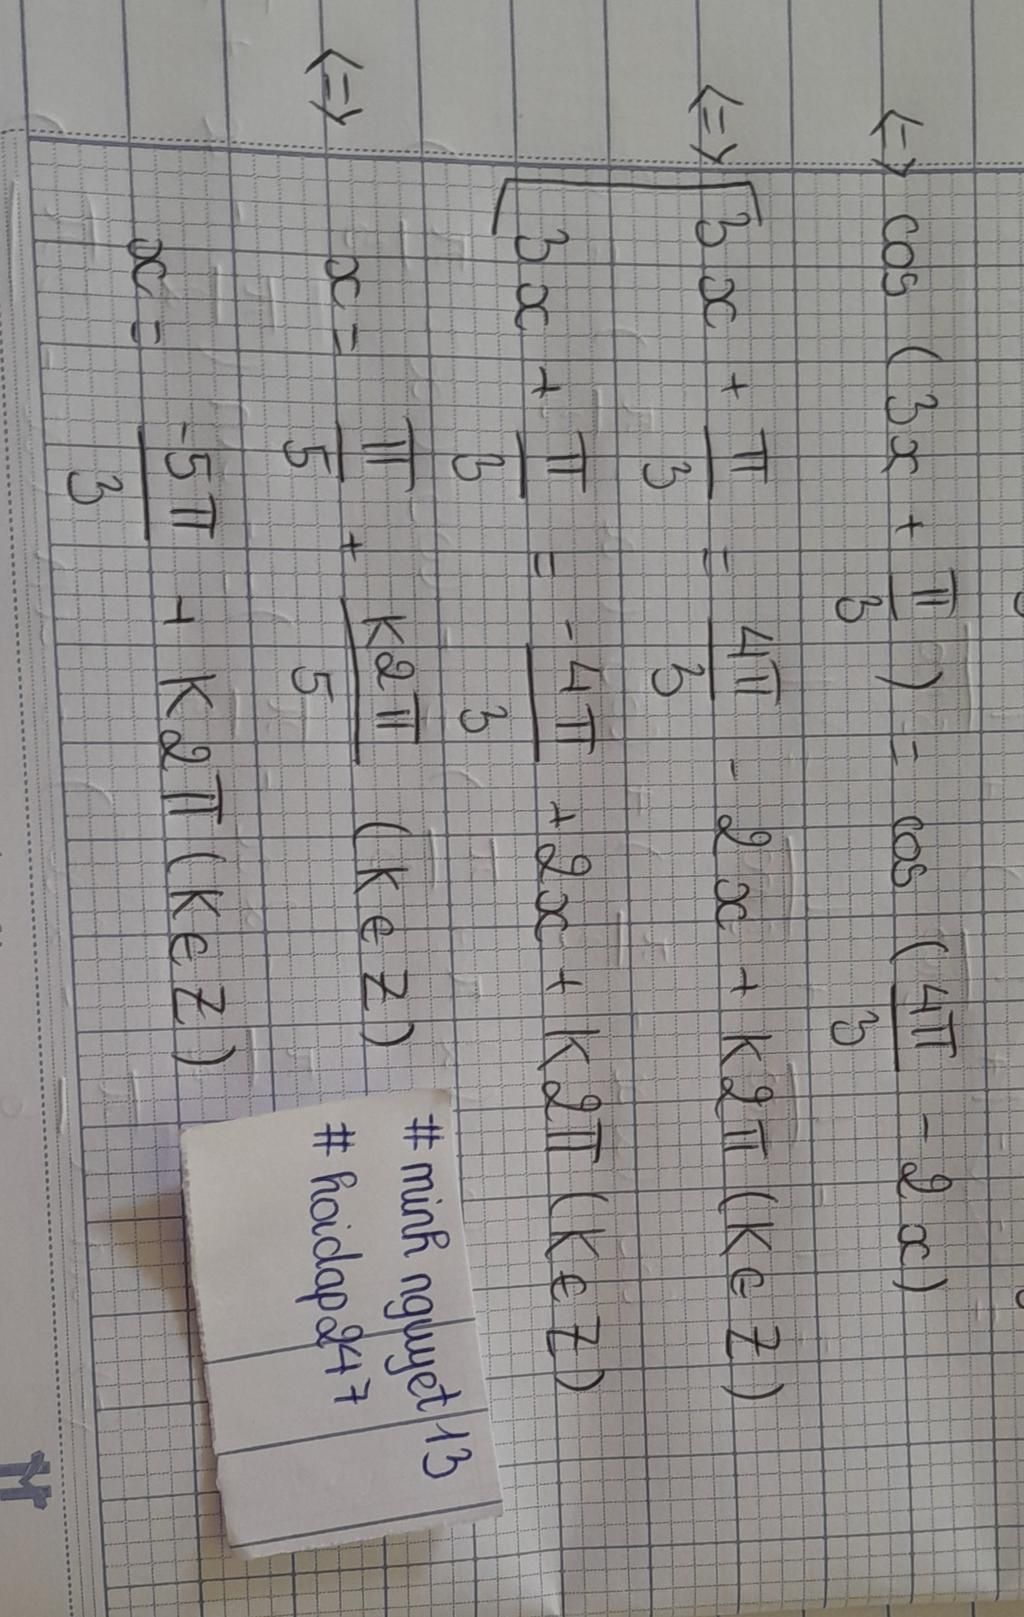 <=> cos (3x + π/3) = cos (4π/3 - 2x)
<=> [ 3x + π/3 = 4π/3 - 2x + k2π (k ∈ Z)
3x + π/3 = -4π/3 + 2x + k2π (k ∈ Z)
<=> x = π/5 + k2π/5 (k ∈ Z)
x = -5π/3 + k2π (k ∈ Z)
# minh nguyet 13
# hoidap247